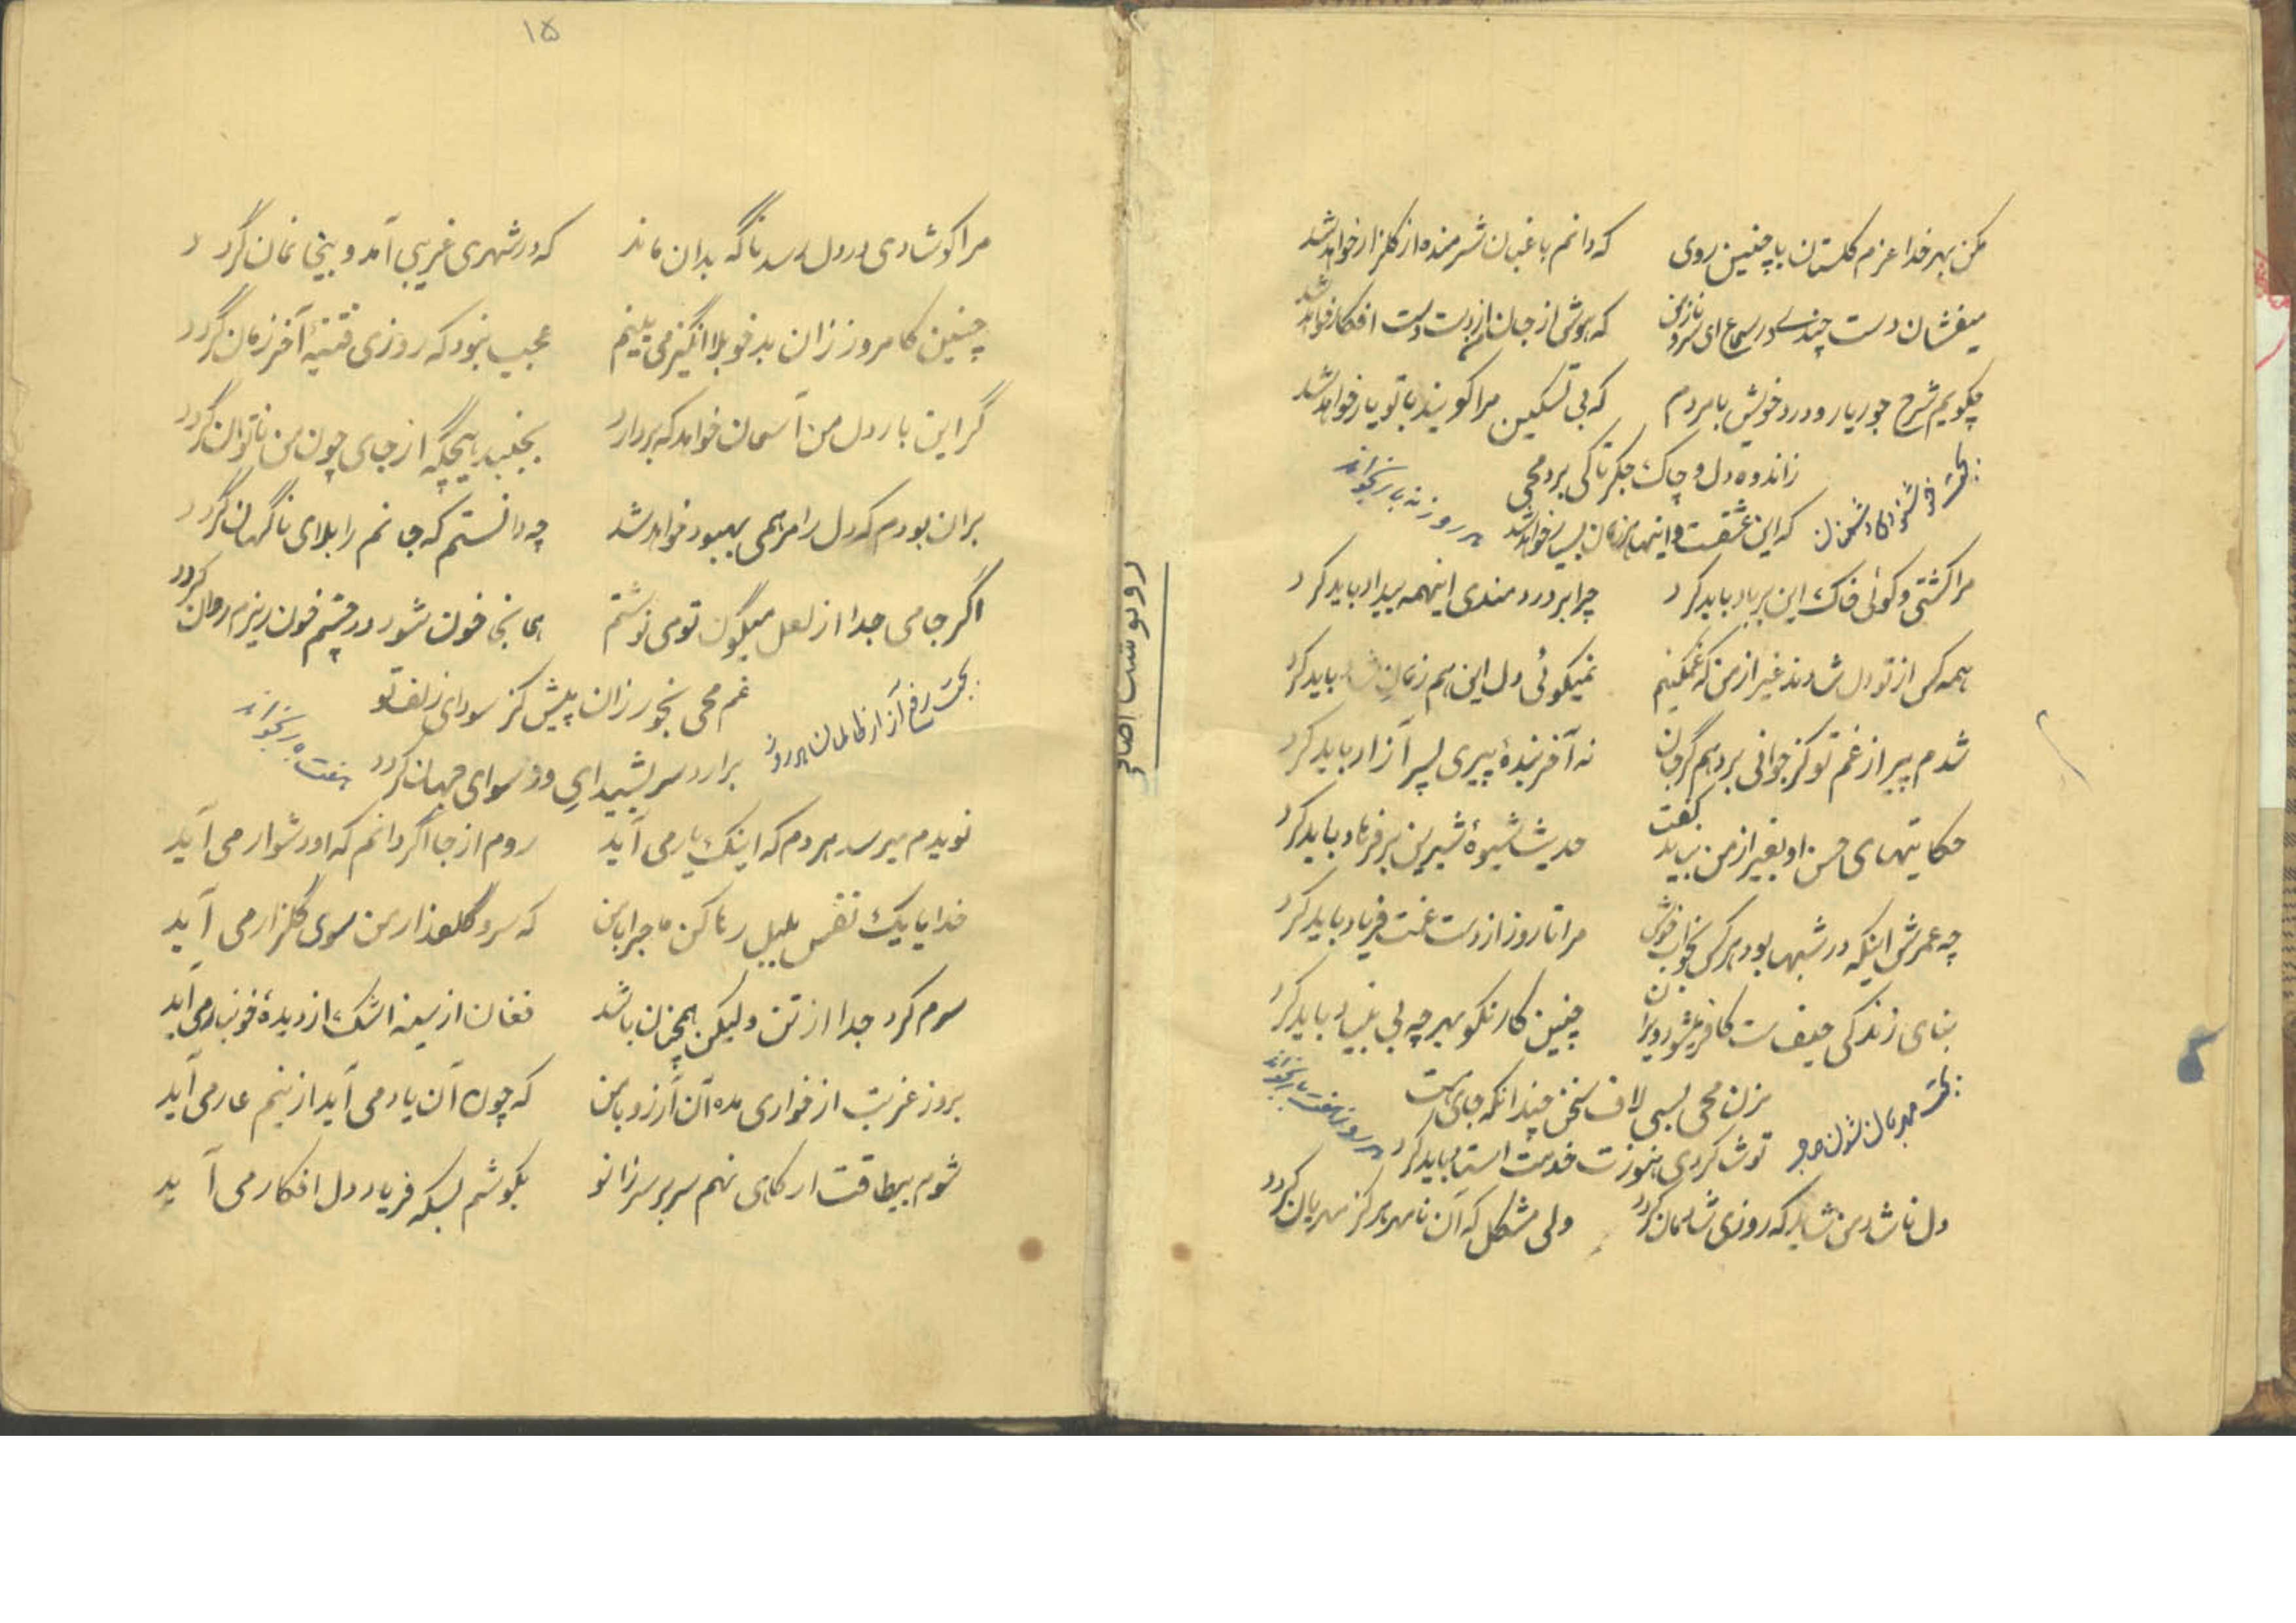 مکن بهر خدا عزم گلستان با چنین روی    که دانم باغبان شرمنده از گلزار خواهد شد
میفشان دست چندی در سماع ای سرو نازمن    که هوش از جان از دست و دست افکار خواهد شد
چگویم شرح جور یار و درد خویش با مردم    که بی تسکین مرا گویند با تو یار خواهد شد
ز اندوه دل و چاک جگر تا کی برد محیی
که این عشقست و اینها هر زمان بسیار خواهد شد
بجهت
هر روز نه بار بخواند
مرا کشتی و گوئی خاک این بر باد باید کرد    چرا بر دردمندی اینهمه بیداد باید کرد
همه کس از تو دل شادند غیر از من که غمگینم    نمیگوئی دل این هم زمانی شاد باید کرد
شدم پیر از غم تو کز جوانی بردهم گر جان    نه آخر بندهٔ پیری پسر آزاد باید کرد
حکایتهای حسن او بغیر از من نباید گفت    حدیث شیوهٔ شیرین بر فرهاد باید کرد
چه عمرش اینکه در شبها بود هر کس بخواب خوش    مرا تا روز از دست غمت فریاد باید کرد
بنای زندگی حیف ست کاخر میشود ویران    چنین کار نکو بهر چه بی بنیاد باید کرد
مزن محیی بسی لاف سخن چندانکه جای هست
تو شاگردی هنوزت خدمت استاد باید کرد
بجهت مهربان شدن
هر روز هفت بار بخواند
دل ناشاد من شاید که روزی شادمان گردد    ولی مشکل که آن نامهر هرگز مهربان گردد
رونوشت اصلاح
۱۵
مرا کو شادی در دل رسد ناگه بدان ماند    که در شهری غریبی آمد و بیخانمان گردد
چنین کامروز زان بدخو بلا انگیز می بینم    عجب نبود که روزی فتنهٔ آخر زمان گردد
گر این بار دل من آسمان خواهد که بردارد    بجنبد هیچگه از جای چون من ناتوان گردد
بران بودم که دل را مرهمی بهبود خواهد شد    چه دانستم که جانم را بلای ناگهان گردد
اگر جامی جدا از لعل میگون تو می نوشتم    همانجا خون شود در چشم خون ریزم روان گردد
غم محیی بخور زان پیش کز سودای زلف تو
برآرد سر بشیدایی و رسوای جهان گردد
بجهت رفع آزار ظالمان هر روز
هفت بار بخواند
نویدم میرسد هر دم که اینک یار می آید    روم از جا اگر دانم که او دشوار می آید
خدا یا یک نفس بلبل رها کن ماجرا با من    که سرو گلعذار من سوی گلزار می آید
سرم کرد جدا از تن ولیکن همچنان باشد    فغان از سینه اشک از دیدهٔ خونبار می آید
بروز غربت از خواری مده آن آرزو با من    که چون آن یاد می آید ازینم عار می آید
شوم بیطاقت ار گاهی نهم سر بر سر زانو    بگوشم بسکه فریاد دل افکار می آید